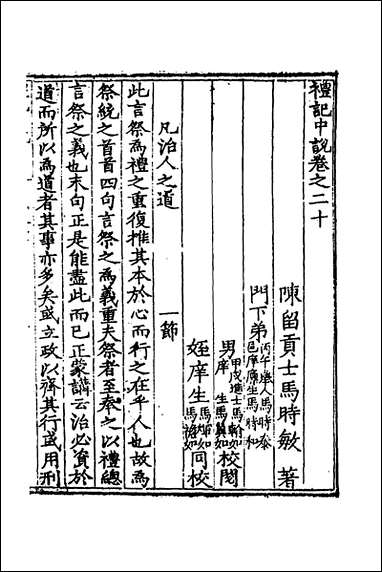 禮記中説卷之二十
陳留貢士馬時敏 著
門下弟 丙午舉人馬時泰
邑庠廩生馬時和
男 甲戌進士馬
庠 生馬翼如 校閲
姪庠生 馬 如
馬 如 同校
凡治人之道 一節
此言祭為禮之重復推其本於心而行之在乎人也故為
祭統之首首四句言祭之為義重夫祭者至奉之以禮總
言祭之義也末句正是能盡此而已正蒙講云治必資於
道而所以為道者其事亦多矣或立政以齊其行或用刑